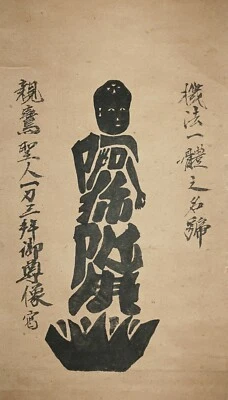 機法一體之名號
阿弥陀
親鸞聖人一刀三拜御尊像寫